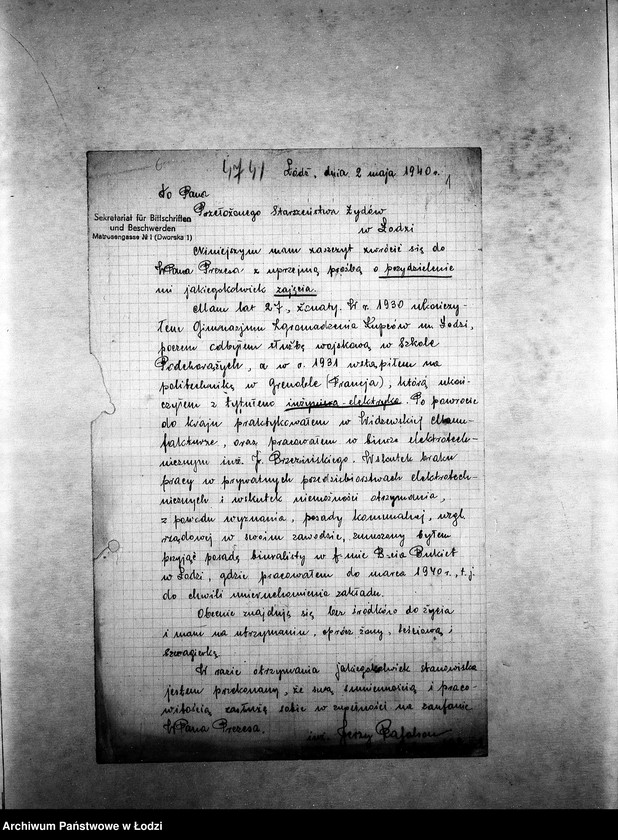 4741 Łódź, dnia 2 maja 1940 r.
1
Do Pana
Przełożonego Starszeństwa Żydów
w Łodzi
Sekretariat für Bittschriften
und Beschwerden
Matrosengasse № 1 (Dworska 1)
Niniejszym mam zaszczyt zwrócić się do
WPana Prezesa z uprzejmą prośbą o przydzielenie
mi jakiegokolwiek zajęcia.
Mam lat 27, żonaty. W r. 1930 ukończy-
łem Gimnazjum Zgromadzenia Kupców m. Łodzi,
poczem odbyłem służbę wojskową w Szkole
Podchorążych, a w r. 1931 wstąpiłem na
politechnikę w Grenoble (Francja), którą ukoń-
czyłem z tytułem inżyniera-elektryka. Po powrocie
do kraju praktykowałem w Widzewskiej Manu-
fakturze, oraz pracowałem w biurze elektrotech-
nicznym inż. J. Brzezińskiego. Wskutek braku
pracy w prywatnych przedsiębiorstwach elektrotech-
nicznych i wskutek niemożności otrzymania,
z powodu wyznania, posady komunalnej, wzgl.
rządowej w swoim zawodzie, zmuszony byłem
przyjąć posadę biuralisty w f-mie B-cia Bukiet
w Łodzi, gdzie pracowałem do marca 1940 r., t.j.
do chwili unieruchomienia zakładu.
Obecnie znajduję się bez środków do życia
i mam na utrzymaniu, oprócz żony, teściową i
szwagierkę.
W razie otrzymania jakiegokolwiek stanowiska
jestem przekonany, że swą sumiennością i praco-
witością zasłużę sobie w zupełności na zaufanie
WPana Prezesa.
inż. Jerzy
Archiwum Państwowe w Łodzi